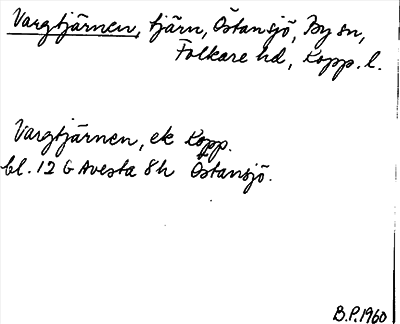 Vargtjärnen, tjärn, Östansjö, By sn,
Folkare hd, Kopp. l.
Vargtjärnen, ek Kopp.
bl. 12 G Avesta 8h Östansjö.
B.P. 1960